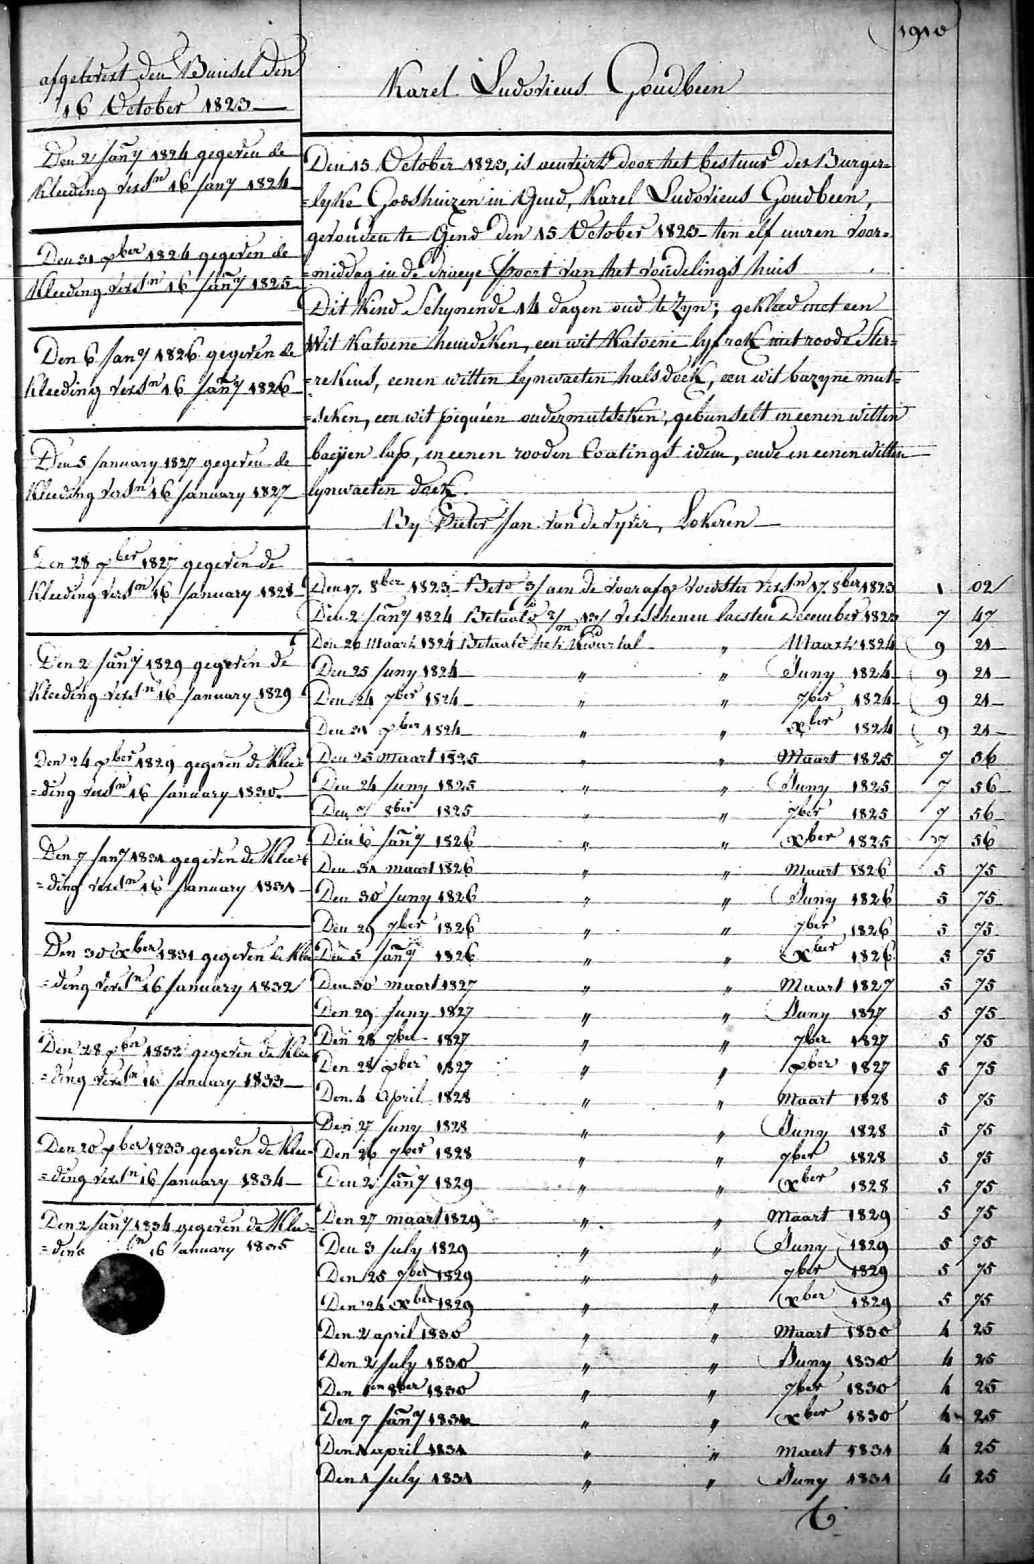 1910
afgelevert den Bunsel den
16 October 1823
Den 2 Jany 1824 gegeven de
kleeding versn 16 Jany 1824
Den 31 xber 1824 gegeven de
kleeding versn 16 Jany 1825
Den 6 Jany 1826 gegeven de
kleeding versn 16 Jany 1826
Den 5 January 1827 gegeven de
kleeding versn 16 January 1827
Den 28 xber 1827 gegeven de
kleeding versn 16 January 1828
Den 2 Jany 1829 gegeven de
kleeding versn 16 January 1829
Den 24 xber 1829 gegeven de klee-
=ding versn 16 January 1830
Den 7 Jany 1831 gegeven de klee-
=ding versn 16 January 1831
Den 30 xber 1831 gegeven de klee
=ding versn 16 January 1832
Den 28 xber 1832 gegeven de klee
=ding versn 16 January 1833
Den 20 xber 1833 gegeven de klee-
=ding versn 16 January 1834
Den 2 Jany 1834 gegeven de klee-
=ding 16 January 1835
Karel Ludovicus Goudbeen
Den 15 October 1823, is aenveirt door het bestuur der Burger-
=lyke Godshuizen in Gend, Karel Ludovicus Goudbeen,
gevonden te Gend den 15 October 1823 ten elf uuren voor-
=middag in de draeye poort van het vondelings huis
Dit kind schynende 14 dagen oud te zyn; gekleed met een
Wit katoene hemdeken, een wit katoene lyfrok met roode ster-
=rekens, eenen witten lynwaeten halsdoek, een wit bazyne mut-
=seken, een wit piquéen ondermutseken, gebunselt in eenen witten
baeyen lap, in eenen rooden Coatingst idem, ende in eenen witten
lynwaeten doek.
By Pieter Jan van de vyver, Lokeren
Den 17. 8ber 1823 Beto 3/ aen de voorafg voedster versn 17. 8ber 1823 1 02
Den 2 Jany 1824 Betaald verschenen laesten December 1823 7 47
Den 20 Maart 1824 Betaald het kwartal " Maart 1824 9 21
Den 25 Juny 1824 " " Juny 1824 9 21
Den 24 7ber 1824 " " 7ber 1824 9 21
Den 31 xber 1824 " " xber 1824 9 21
Den 25 maart 1825 " " Maart 1825 7 56
Den 24 Juny 1825 " " Juny 1825 7 56
Den 7 8ber 1825 " " 7ber 1825 7 56
Den 6 Jany 1826 " " xber 1825 7 56
Den 31 maart 1826 " " Maart 1826 5 75
Den 30 Juny 1826 " " Juny 1826 5 75
Den 29 7ber 1826 " " 7ber 1826 5 75
Den 5 Jany 1826 " " xber 1826 5 75
Den 30 maart 1827 " " Maart 1827 5 75
Den 29 Juny 1827 " " Juny 1827 5 75
Den 28 7ber 1827 " " 7ber 1827 5 75
Den 28 xber 1827 " " xber 1827 5 75
Den 4 April 1828 " " Maart 1828 5 75
Den 27 Juny 1828 " " Juny 1828 5 75
Den 26 7ber 1828 " " 7ber 1828 5 75
Den 2 Jany 1829 " " xber 1828 5 75
Den 27 maart 1829 " " Maart 1829 5 75
Den 3 July 1829 " " Juny 1829 5 75
Den 25 7ber 1829 " " 7ber 1829 5 75
Den 24 xber 1829 " " xber 1829 5 75
Den 2 april 1830 " " Maart 1830 4 25
Den 2 July 1830 " " Juny 1830 4 25
Den 1en 8ber 1830 " " 7ber 1830 4 25
Den 7 Jany 1831 " " xber 1830 4 25
Den 1 april 1831 " " Maert 1831 4 25
Den 1 July 1831 " " Juny 1831 4 25